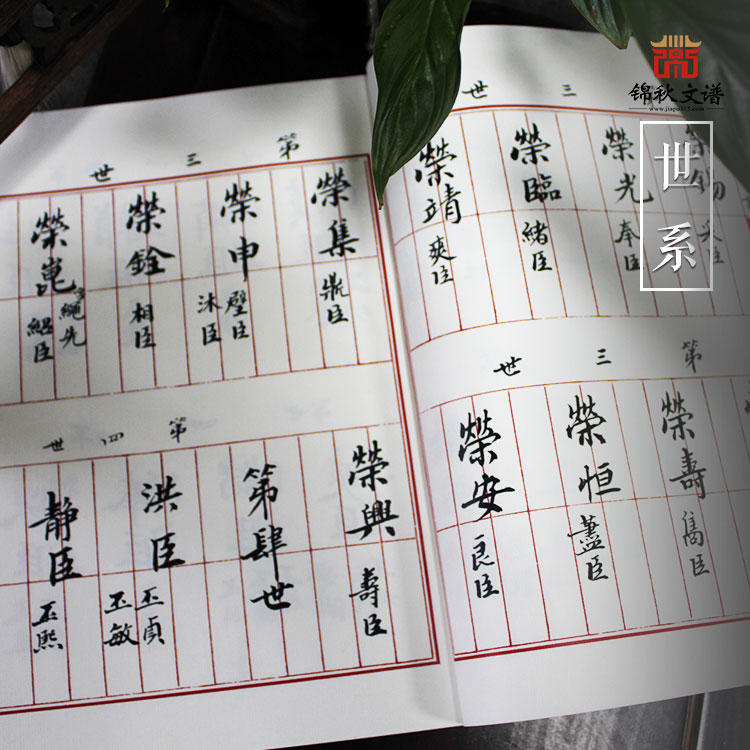 锦秋文谱
www.jiapu315.com
世系
三世
榮錫
榮光
榮臨
榮靖
奉臣
緒臣
爽臣
第三世
榮壽
榮恒
榮安
雋臣
藎臣
良臣
第三世
榮集
榮申
榮銓
榮崑
鼎臣
璧臣
沐臣
相臣
繩先
紹臣
第四世
榮興
第肆世
洪臣
靜臣
壽臣
玉貞
玉敏
玉熙